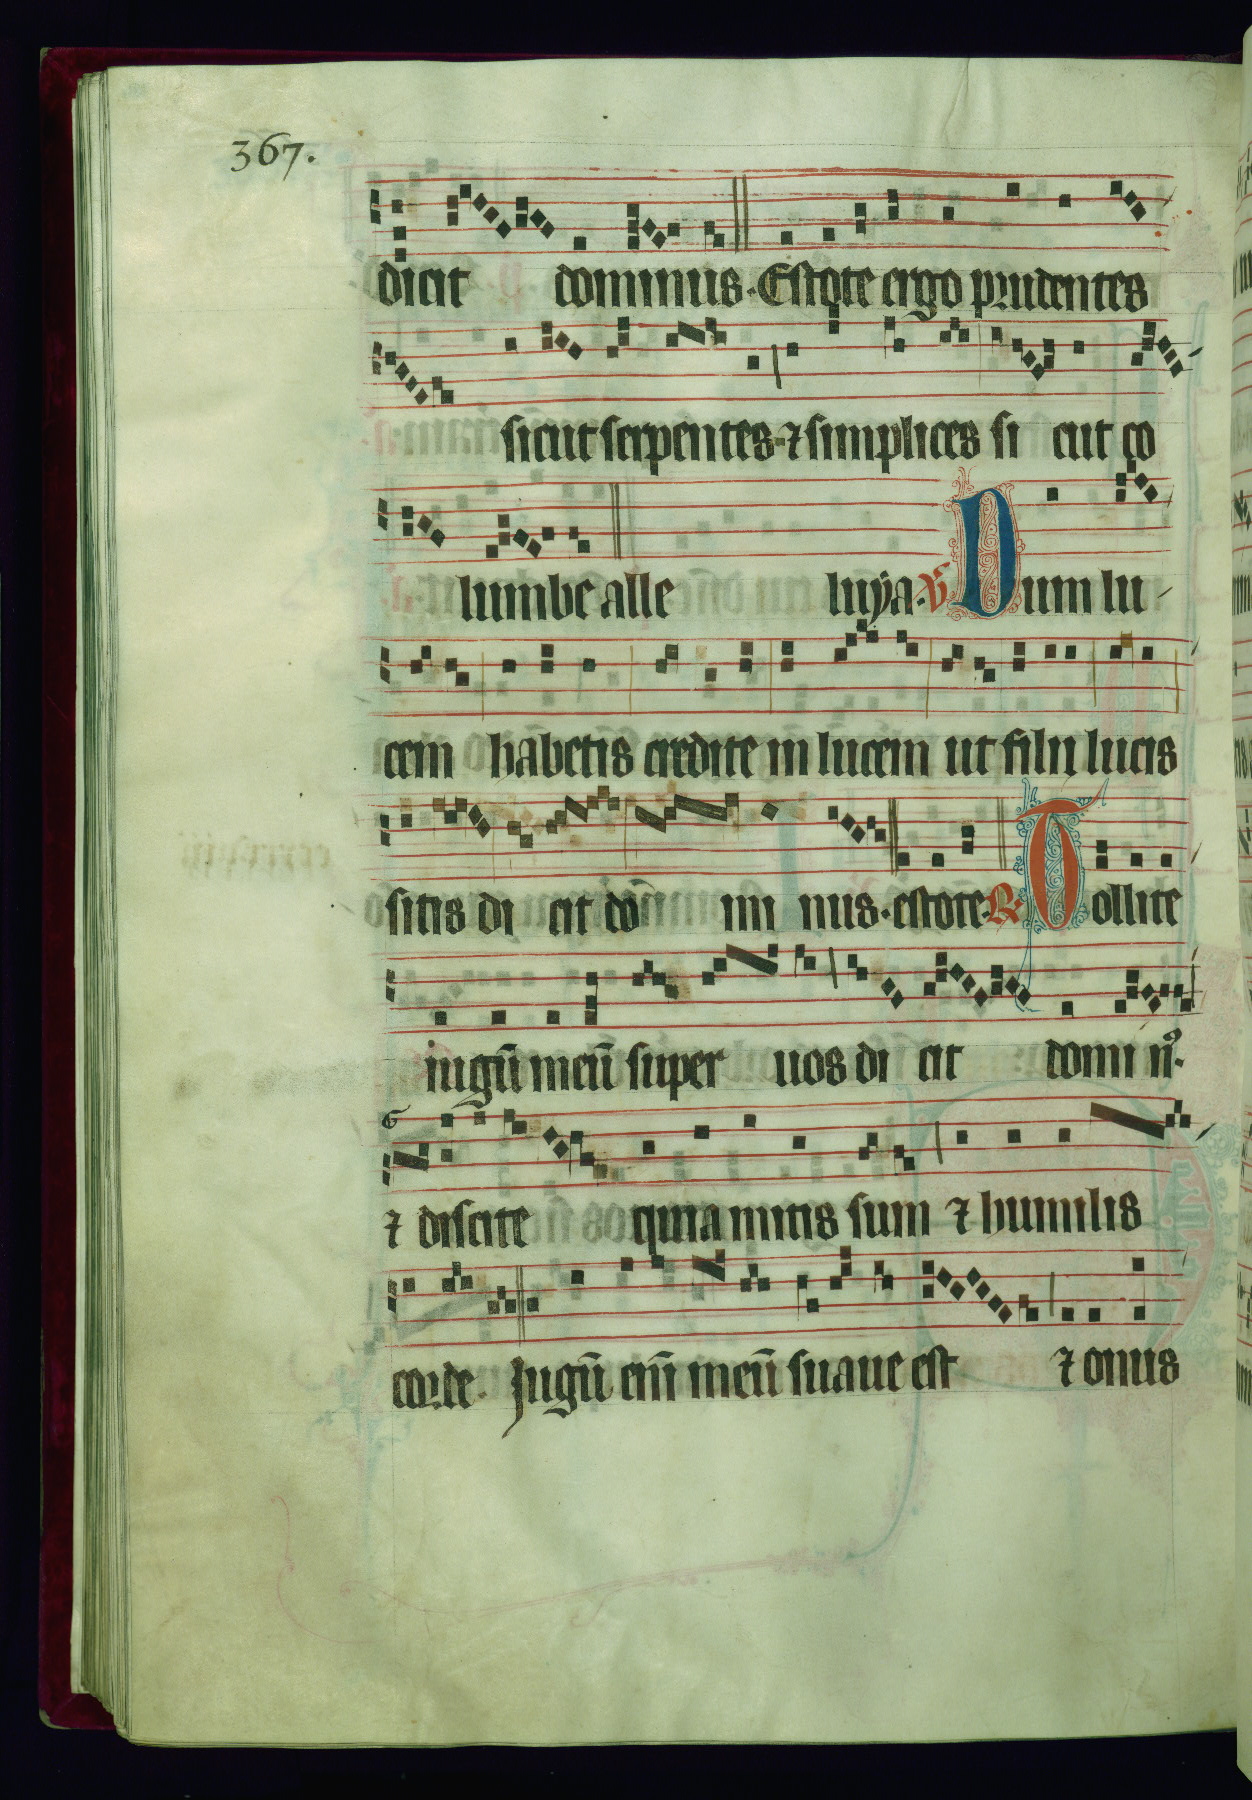 367.
dicit dominus. Estote ergo prudentes
sicut serpentes ⁊ simplices si cut co
lumbe alle luÿa. V Dum lu
cem habetis credite in lucem ut filii lucis
sitis di cit do mi nus. estote. R Tollite
iugū meū super uos di cit domi nꝰ.
⁊ discite quia mitis sum ⁊ humilis
corde. Jugū enī meū suaue est ⁊ onus